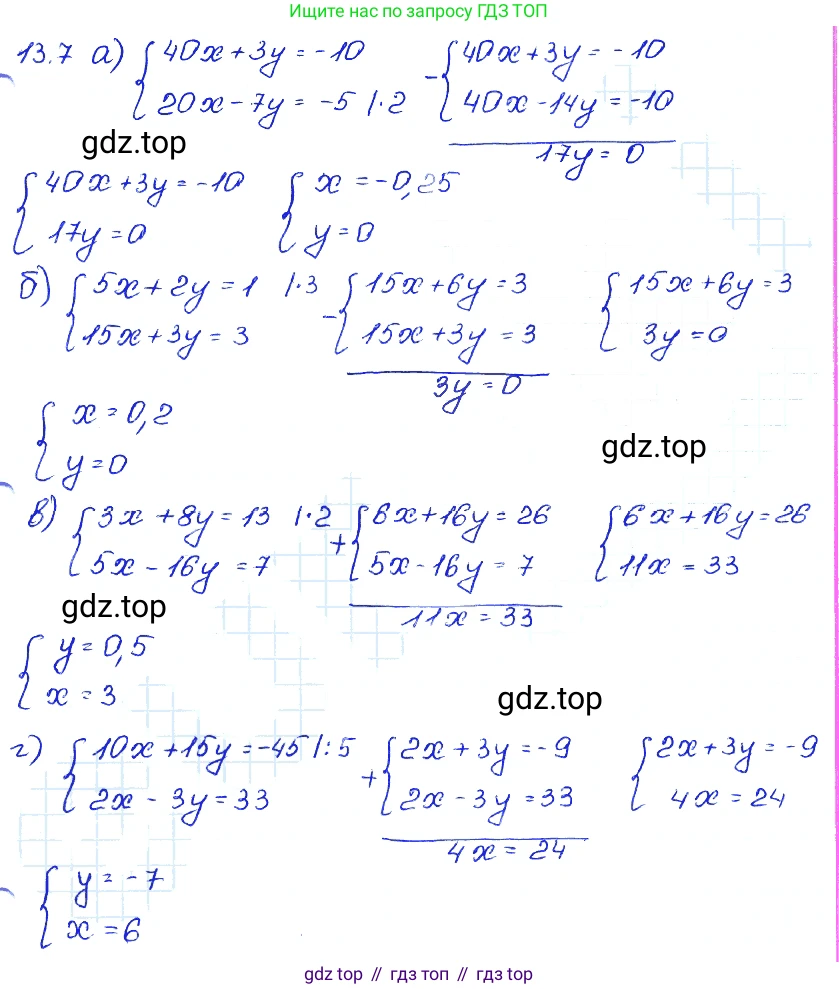 Ищите нас по запросу ГДЗ ТОП
13.7 а) {40x + 3y = -10 -{40x + 3y = -10
{20x - 7y = -5 |·2 {40x - 14y = -10
gdz.top
17y = 0
{40x + 3y = -10 {x = -0,25
{17y = 0 {y = 0
б) {5x + 2y = 1 |·3 -{15x + 6y = 3 {15x + 6y = 3
{15x + 3y = 3 {15x + 3y = 3 {3y = 0
3y = 0
{x = 0,2
{y = 0
gdz.top
в) {3x + 8y = 13 |·2 +{6x + 16y = 26 {6x + 16y = 26
{5x - 16y = 7 {5x - 16y = 7 {11x = 33
gdz.top
11x = 33
{y = 0,5
{x = 3
gdz.top
г) {10x + 15y = -45 |:5 +{2x + 3y = -9 {2x + 3y = -9
{2x - 3y = 33 {2x - 3y = 33 {4x = 24
4x = 24
{y = -7
{x = 6
gdz top // гдз топ // гдз top